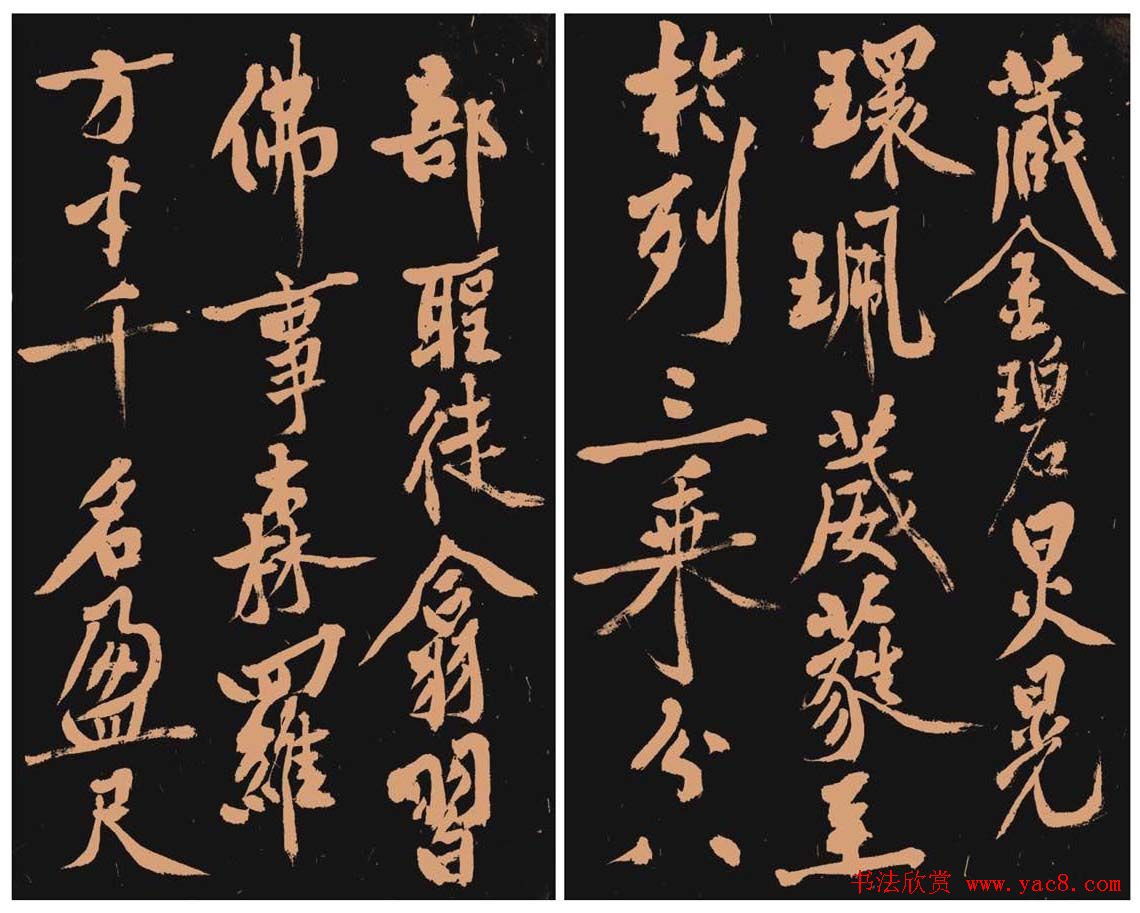 藏金碧炅晃
環珮葳蕤至
於列三乘分八
部聖徒翕習
佛事森羅
方寸千名盈尺
书法欣赏 www.yac8.com